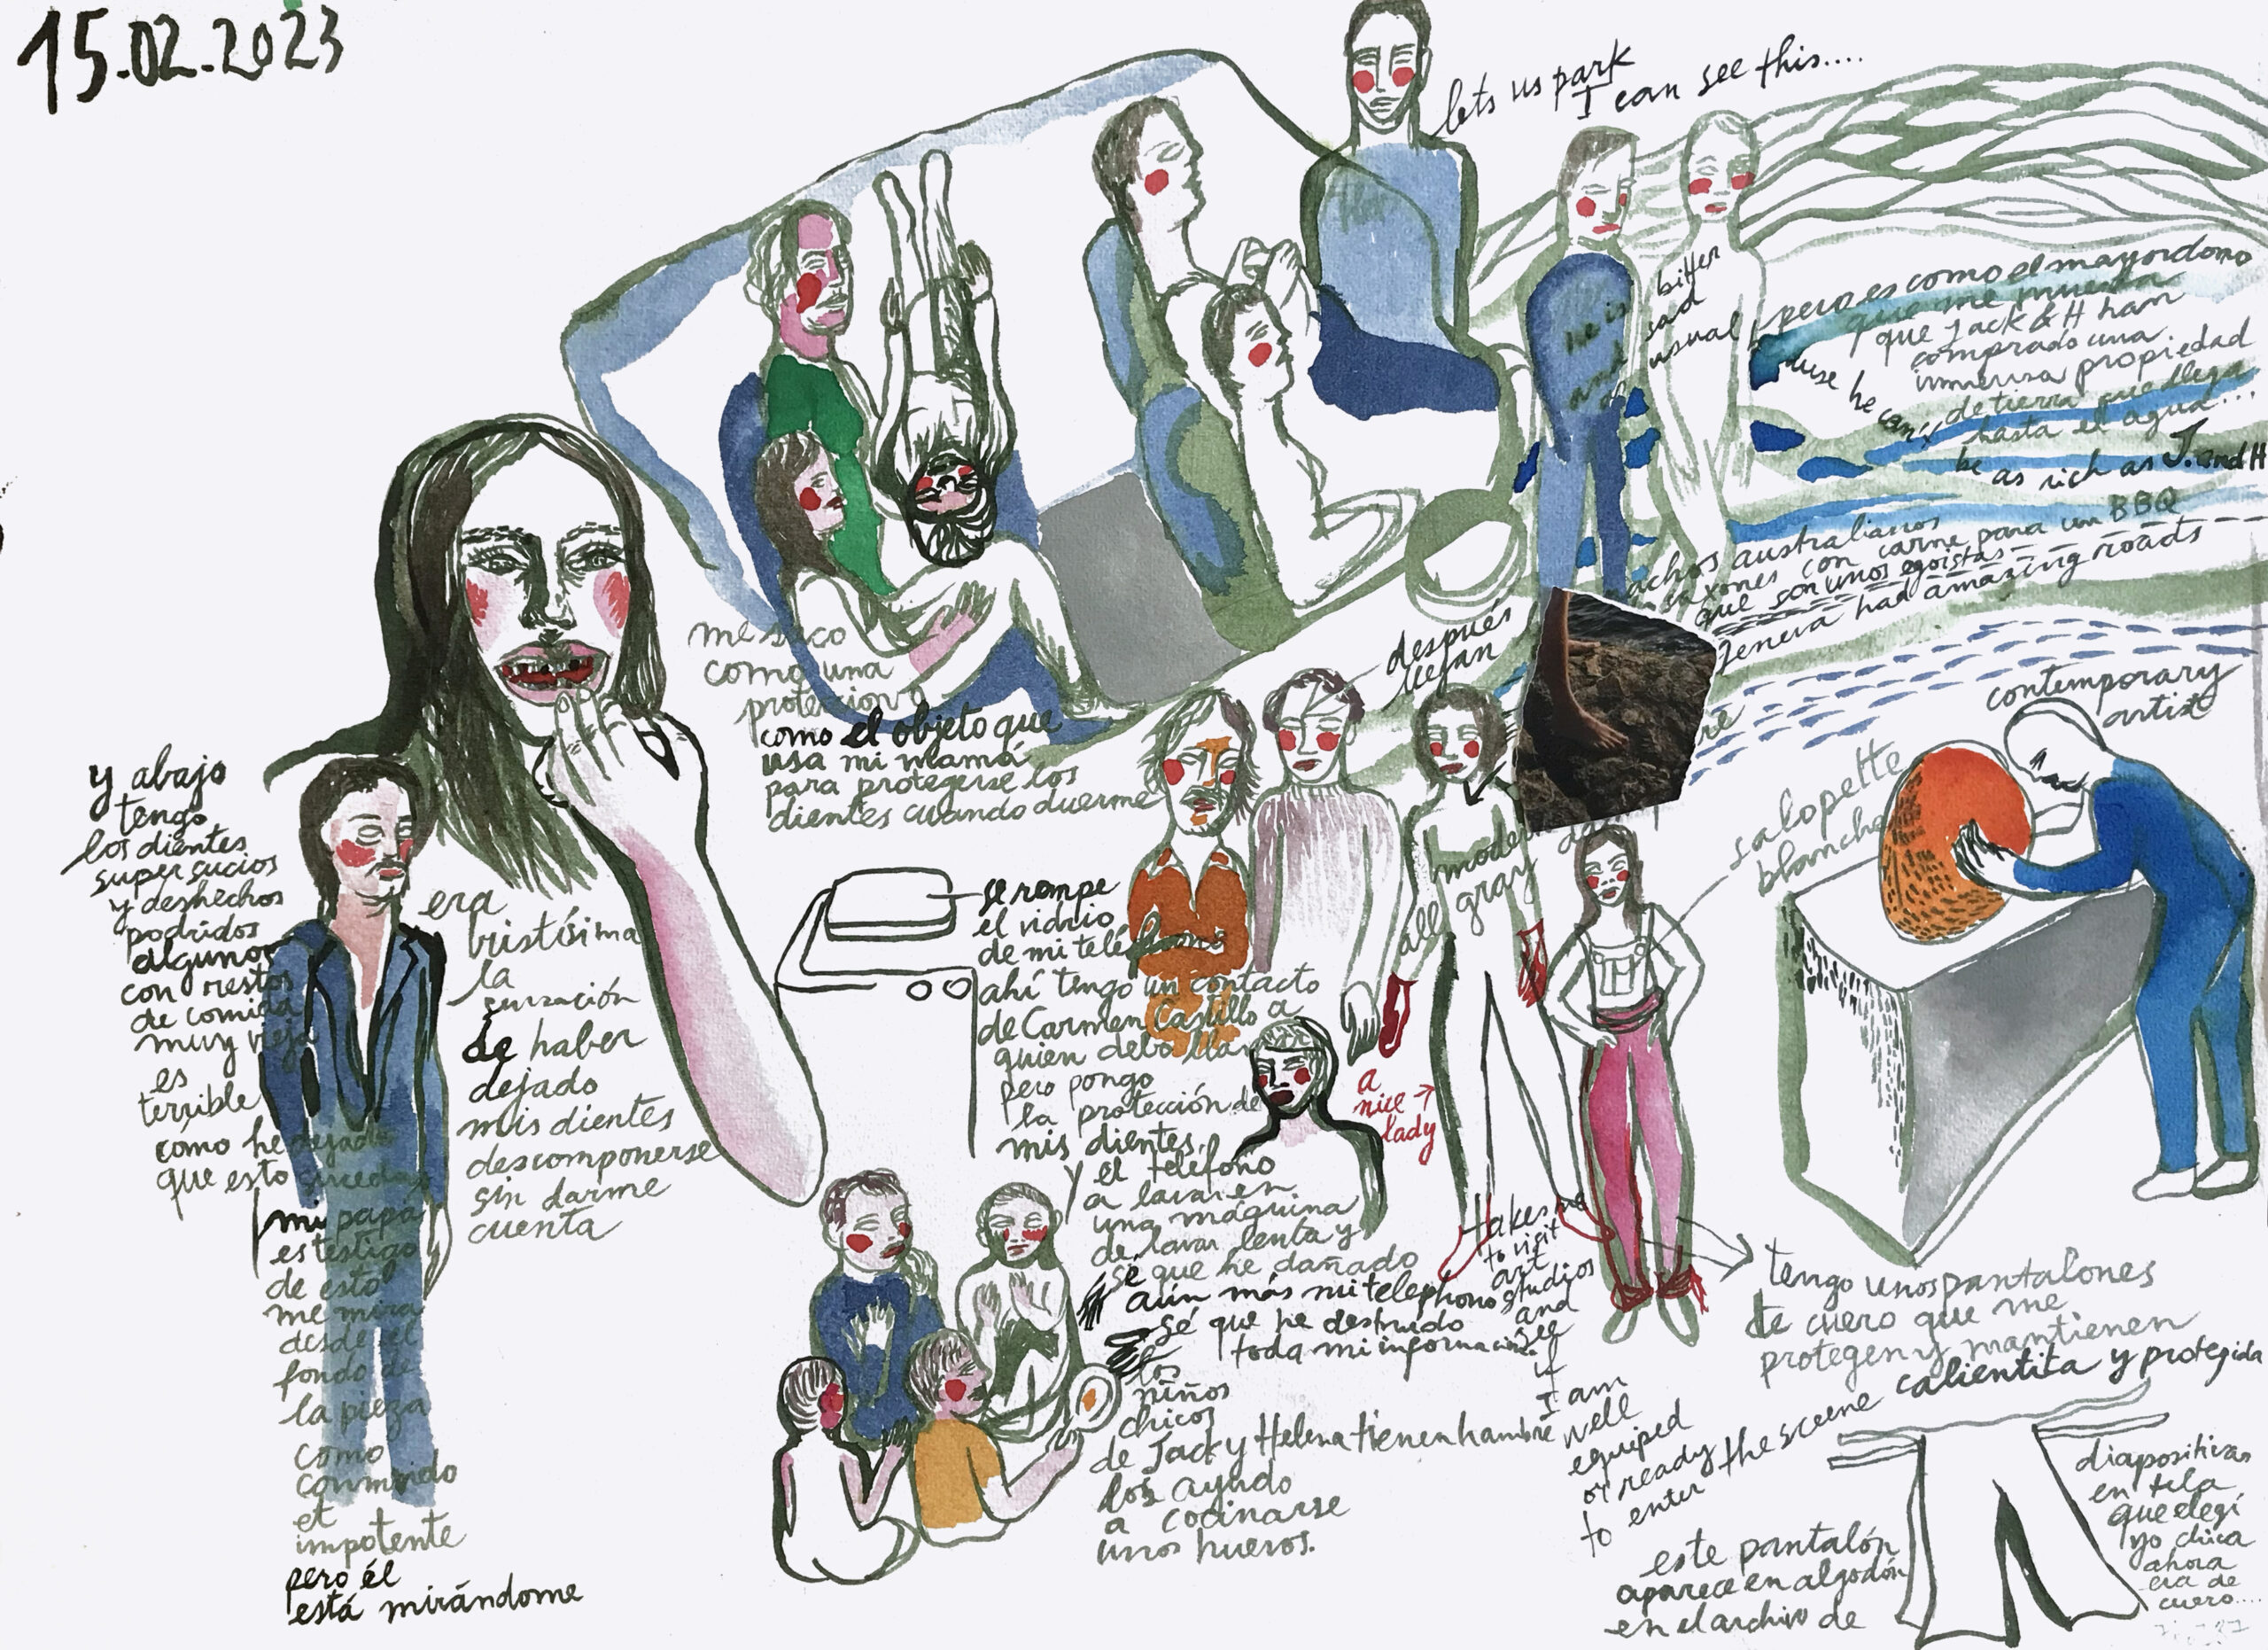 15.02.2023
lets us park
I can see this....
bitter
sad
usual
he is
and
pero es como el mayordomo
que me muestra
que Jack & H han
comprado una
inmensa propiedad
de tierra que llega
hasta el agua...
he can't
be as rich as J. and H
australianos
con carne para un BBQ
que son unos egoistas
Geneva had amazing roads
me saco
como una
protección
como el objeto que
usa mi mamá
para protegerse los
dientes cuando duerme
después
llegan
contemporary
artist
salopette
blanche
y abajo
tengo
los dientes
super sucios
y deshechos
podridos
algunos
con restos
de comida
muy vieja
es
terrible
como he dejado
que esto suceda
mi papá
es testigo
de esto
me mira
desde el
fondo de
la pieza
como
conmovido
et
impotente
pero él
está mirándome
era
tristísima
la
sensación
de haber
dejado
mis dientes
descomponerse
sin darme
cuenta
se rompe
el vidrio
de mi teléfono
ahí tengo un contacto
de Carmen Castillo a
quien debo llamar
pero pongo
la protección de
mis dientes
y el teléfono
a lavar en
una máquina
de lavar lenta y
sé que he dañado
aún más mi telephono
sé que he destruido
toda mi información
los
niños
chicos
de Jack y Helena tienen hambre
los ayudo
a cocinarse
unos huevos.
all gray
a
nice →
lady
takes me
to visit
art
studios
and
see
if
I am
well
equiped
or ready
to enter the scene
tengo unos pantalones
de cuero que me
protegen y mantienen
calientita y protegida
este pantalón
aparece en algodón
en el archivo de
diapositivas
en tela
que elegí
yo chica
ahora
era de
cuero....